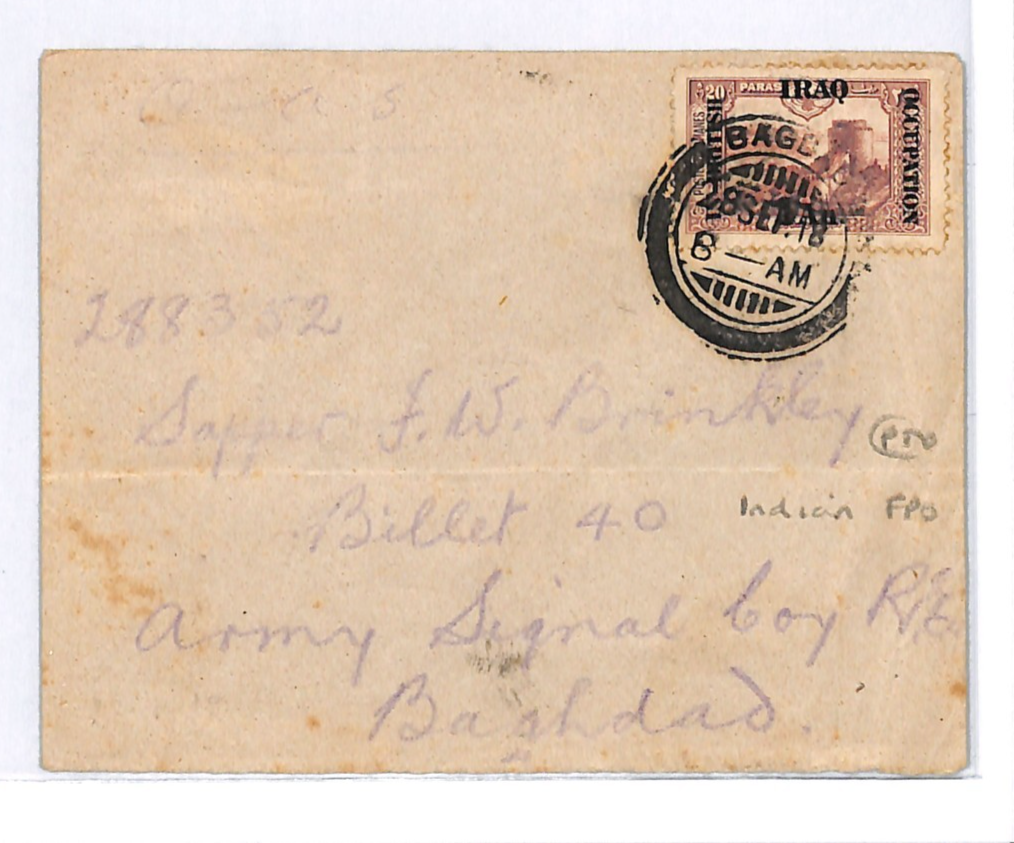 20 PARAS
IRAQ
BRITISH
OCCUPATION
BAGD
28 SEP. 18
8 — AM
288352
Sapper F. W. Brinkley
PTO
Billet 40
Indian FPO
Army Signal Coy R.E.
Baghdad.